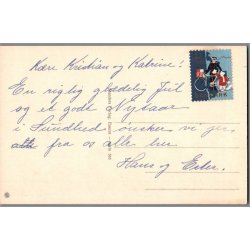 Kære Kristian og Katrine!
En rigtig glædelig Jul
og et godt Nytaar
i Sundhed ønsker vi jer
alle fra os alle her
Hans og Ester.